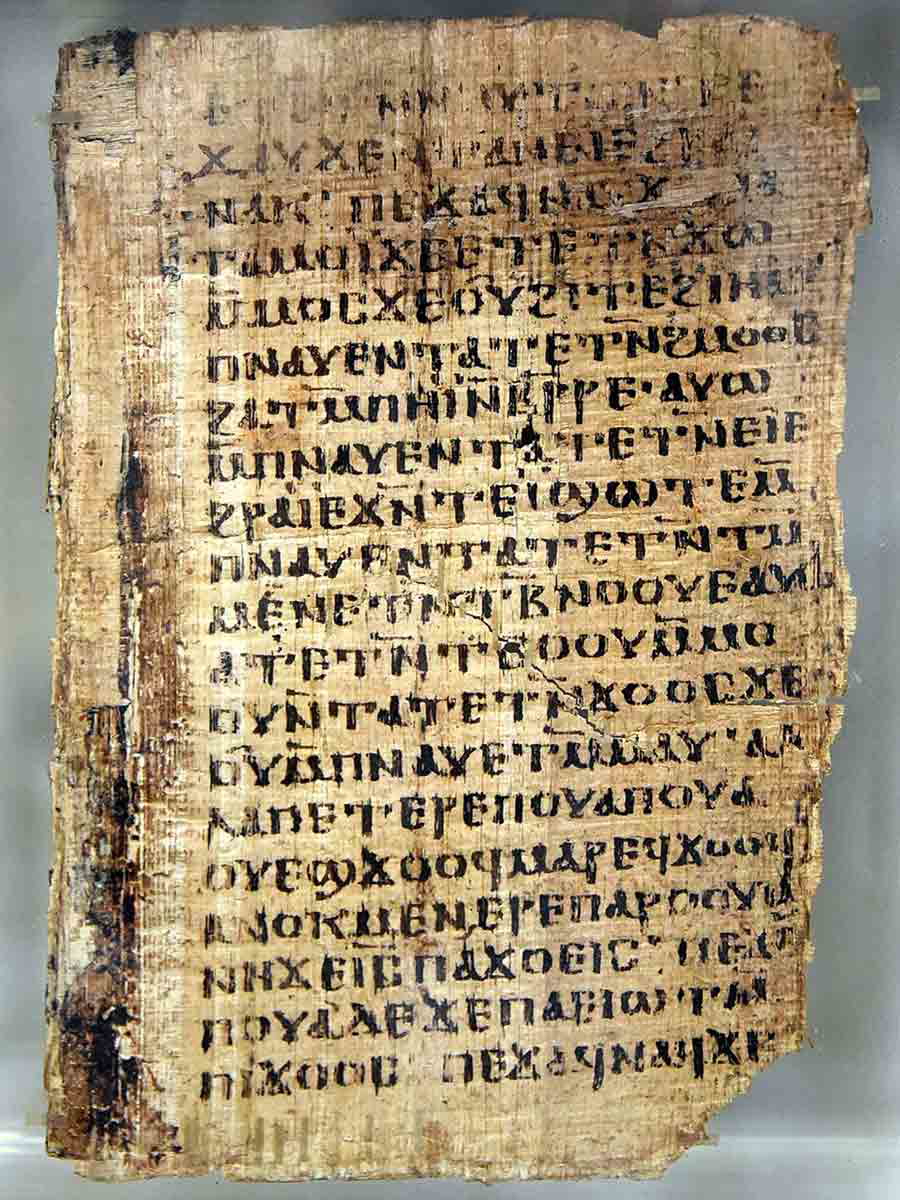 ⲛⲁⲕ· ⲡⲉϫⲁϥ
ⲧⲁⲙⲟⲓ̈ϫⲉⲉⲧⲉⲧⲛ̄ϫⲱ
ⲙ̄ⲙⲟⲥϫⲉⲟⲩϩⲓⲧⲉϩⲓⲏ
ⲡⲛⲁⲩⲉⲛⲧⲁⲧⲉⲧⲛ̄ϩⲙⲟⲟⲥ
ϩⲁⲧⲙ̄ⲡⲏⲓ̈ⲛ̄ⲃⲣ̄ⲣⲉ·ⲁⲩⲱ
ⲙ̄ⲡⲛⲁⲩⲉⲛⲧⲁⲧⲉⲧⲛ̄ⲉⲓⲉ
ϩⲣⲁⲓ̈ⲉϫⲛ̄ⲧⲉⲓ̈ϣⲱⲧⲉⲙ̄
ⲡⲛⲁⲩⲉⲛⲧⲁⲧⲉⲧⲛ̄ⲧⲙ̄
ⲙⲉⲛⲉⲧⲛ̄ⲧⲃⲛⲟⲟⲩⲉⲁⲩⲱ
ⲁⲧⲉⲧⲛ̄ⲧⲥⲟⲟⲩⲙ̄ⲙⲟ
ⲟⲩⲛ̄ⲧⲁⲧⲉⲧⲛ̄ϫⲟⲟⲥϫⲉ
ⲟⲩⲙ̄ⲡⲛⲁⲩⲉⲧⲙ̄ⲙⲁⲩ·ⲁⲗ
ⲗⲁⲡⲉⲧⲉⲣⲉⲡⲟⲩⲁⲡⲟⲩⲁ
ⲟⲩⲉϣϫⲟⲟϥⲙⲁⲣⲉϥϫⲟⲟϥ
ⲁⲛⲟⲕⲙⲉⲛⲉⲣⲉⲡⲁⲣⲟⲟⲩϣ
ⲛⲏϫⲉⲓⲥⲡⲁϫⲟⲉⲓⲥ· ⲡⲉϫ
ⲡⲟⲩⲁⲇⲉϫⲉⲡⲁⲉⲓⲱⲧⲁ
ⲡⲓϫⲟⲟⲥ ⲡⲉϫⲁϥⲛⲁⲓ̈ϫⲉ